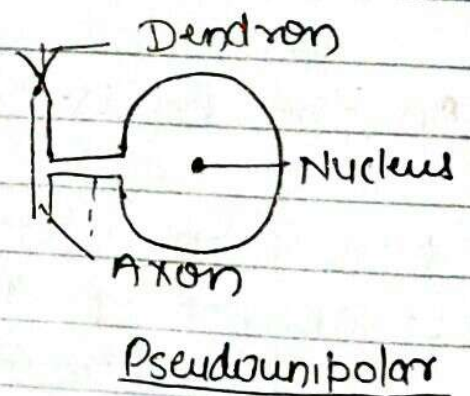 Dendron
Nucleus
Axon
Pseudounipolar